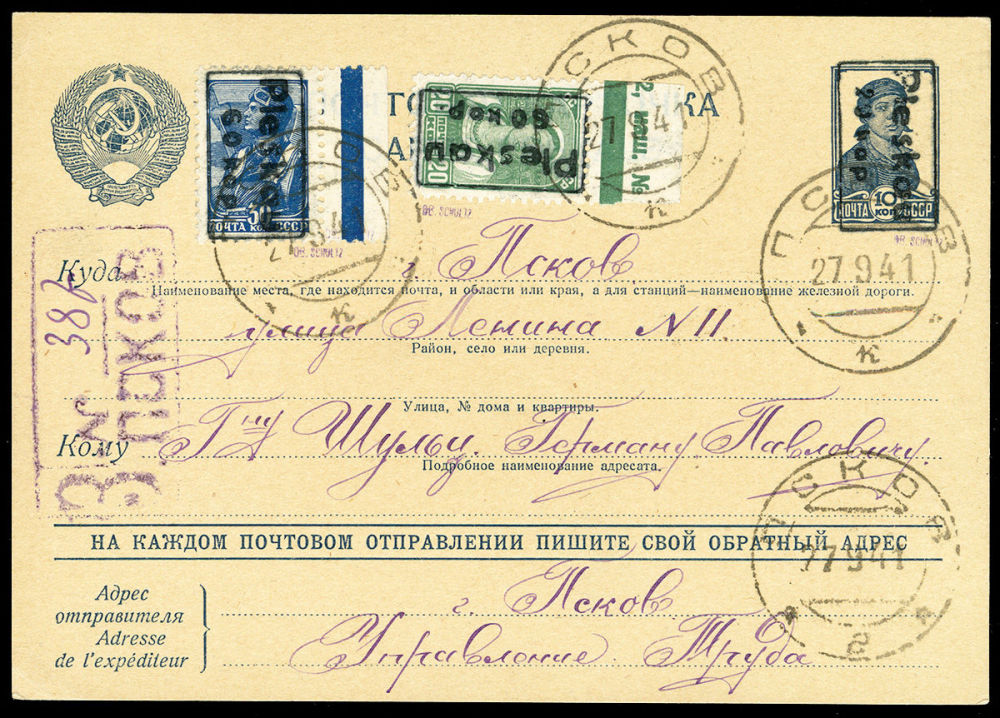 Pleskau
60 кор
30
ПОЧТА КОП СССР
DR. SCHULTZ
Pleskau
60 кор
20
2, кащ. №
DR. SCHULTZ
ТО КА
А
Pleskau
кор
ПОЧТА 10 КОП СССР
DR. SCHULTZ
ПСКОВ
27 9 41
к
ПСКОВ
27 41
к
ПСКОВ
27 9 41
к
Куда г. Псков
Наименование места, где находится почта, и области или края, а для станций—наименование железной дороги.
улица Ленина N 11
Район, село или деревня.
Улица, № дома и квартиры.
Кому Г-ну Шульц Герману Павловичу.
Подробное наименование адресата.
З ПСКОВ
№ 382
НА КАЖДОМ ПОЧТОВОМ ОТПРАВЛЕНИИ ПИШИТЕ СВОЙ ОБРАТНЫЙ АДРЕС
ПСКОВ
27 9 41
2
Адрес
отправителя
Adresse
de l'expéditeur
г. Псков
Управление Труда